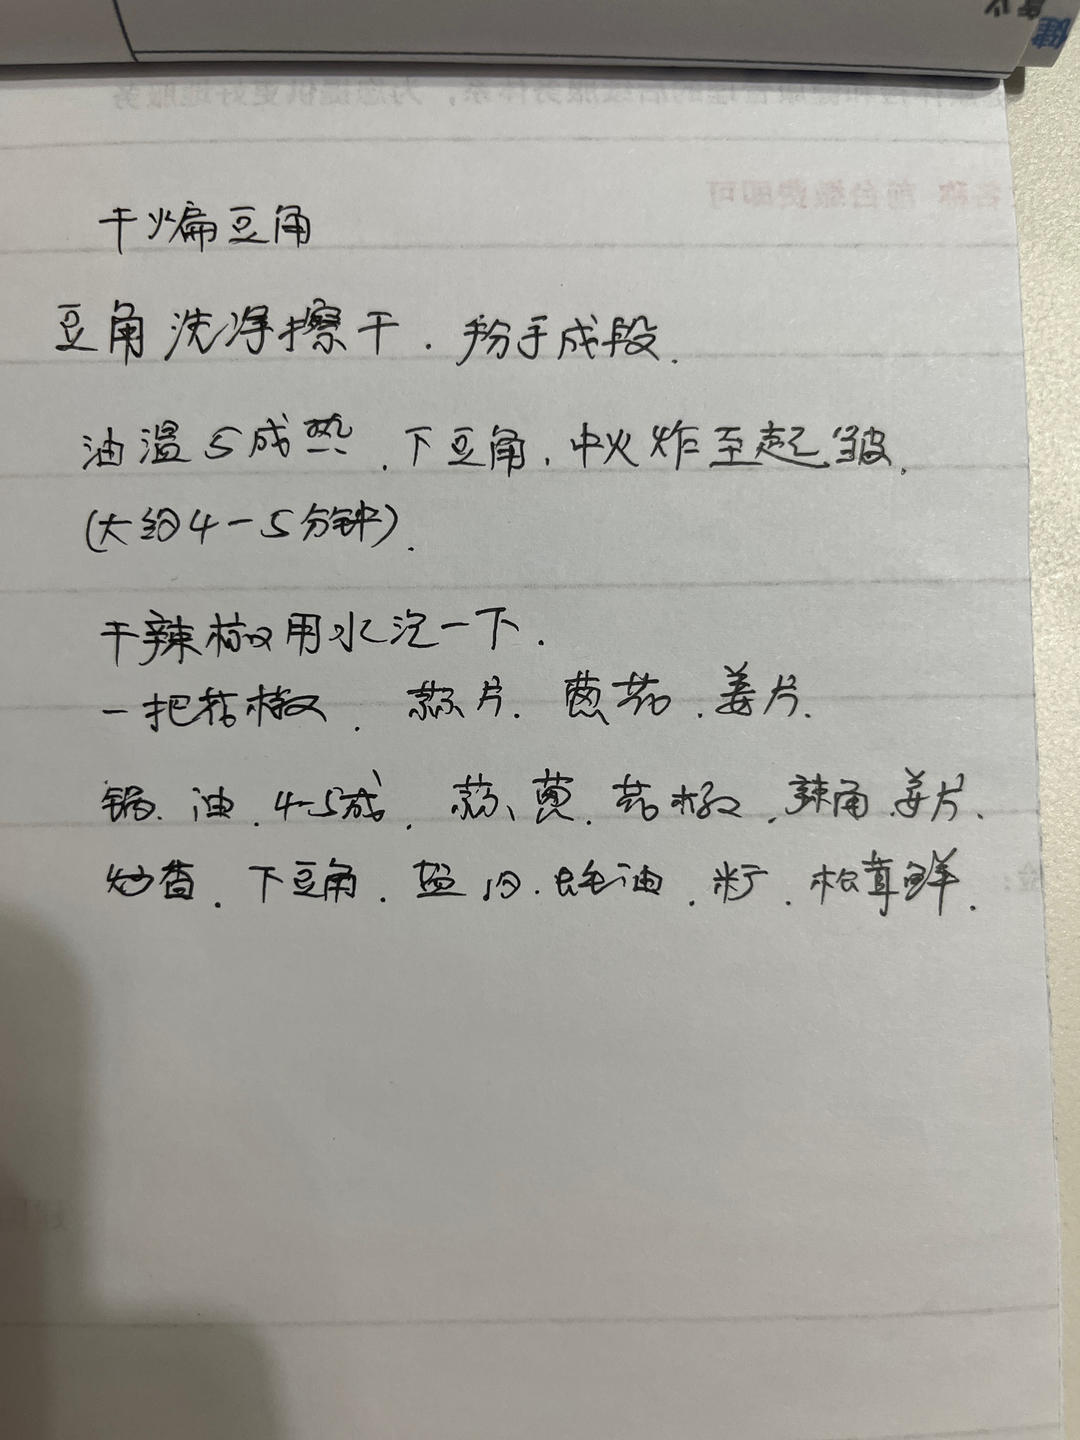 健
名称 前台缴费即可
干煸豆角
豆角洗净擦干.掰手成段.
油温5成热.下豆角.中火炸至起皱.
(大约4-5分钟).
干辣椒用水泡一下.
一把花椒.蒜片.葱花.姜片.
锅.油.4-5成.蒜、葱.花椒.辣角.姜片.
炒香.下豆角.盐.蚝油.松茸鲜.